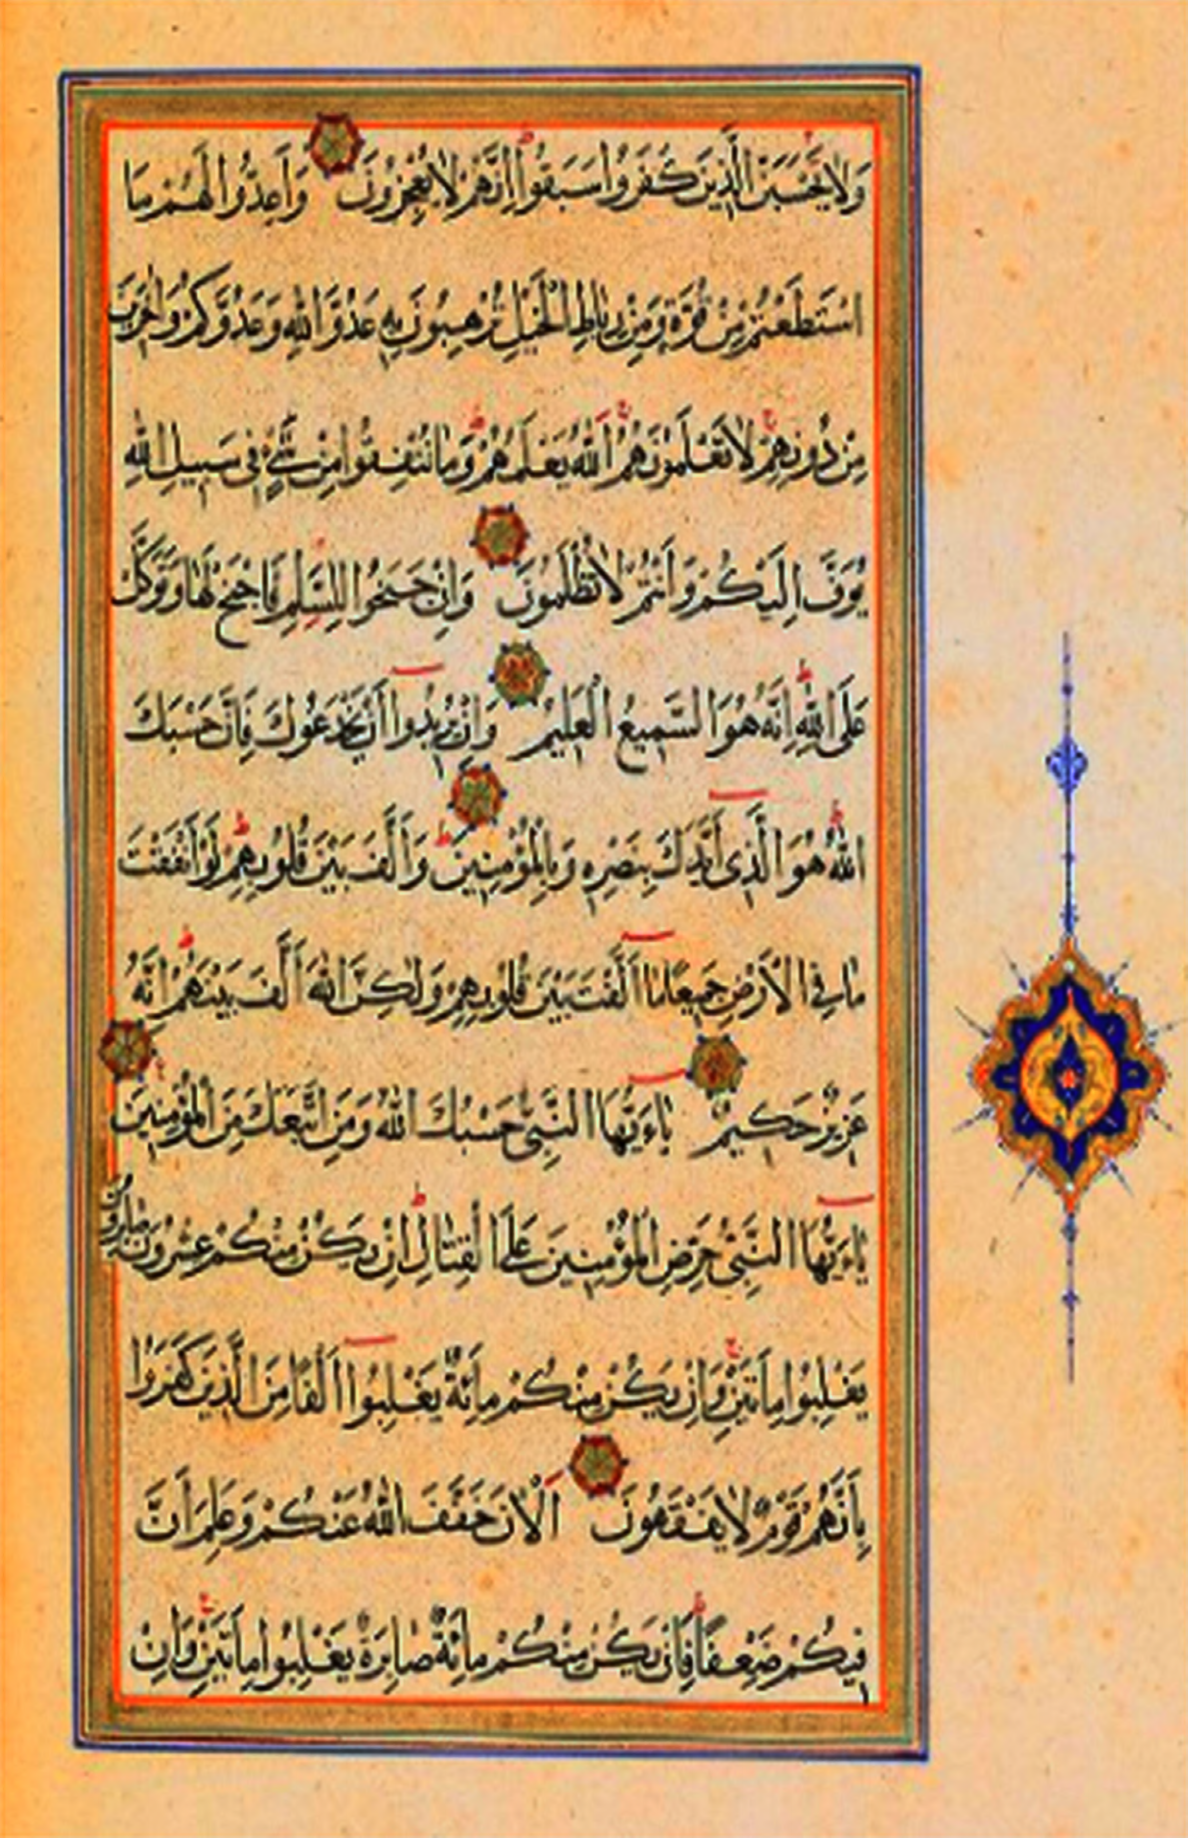 وَلَا يَحْسَبَنَّ الَّذِينَ كَفَرُوا سَبَقُوا إِنَّهُمْ لَا يُعْجِزُونَ وَأَعِدُّوا لَهُمْ مَا
اسْتَطَعْتُمْ مِنْ قُوَّةٍ وَمِنْ رِبَاطِ الْخَيْلِ تُرْهِبُونَ بِهِ عَدُوَّ اللهِ وَعَدُوَّكُمْ وَاٰخَرِينَ
مِنْ دُونِهِمْ لَا تَعْلَمُونَهُمُ اللهُ يَعْلَمُهُمْ وَمَا تُنْفِقُوا مِنْ شَيْءٍ فِي سَبِيلِ اللهِ
يُوَفَّ إِلَيْكُمْ وَأَنْتُمْ لَا تُظْلَمُونَ وَإِنْ جَنَحُوا لِلسَّلْمِ فَاجْنَحْ لَهَا وَتَوَكَّلْ
عَلَى اللهِ إِنَّهُ هُوَ السَّمِيعُ الْعَلِيمُ وَإِنْ يُرِيدُوا أَنْ يَخْدَعُوكَ فَإِنَّ حَسْبَكَ
اللهُ هُوَ الَّذِي أَيَّدَكَ بِنَصْرِهِ وَبِالْمُؤْمِنِينَ وَأَلَّفَ بَيْنَ قُلُوبِهِمْ لَوْ أَنْفَقْتَ
مَا فِي الْأَرْضِ جَمِيعًا مَا أَلَّفْتَ بَيْنَ قُلُوبِهِمْ وَلٰكِنَّ اللهَ أَلَّفَ بَيْنَهُمْ إِنَّهُ
عَزِيزٌ حَكِيمٌ يَاءَيُّهَا النَّبِيُّ حَسْبُكَ اللهُ وَمَنِ اتَّبَعَكَ مِنَ الْمُؤْمِنِينَ
يَاءَيُّهَا النَّبِيُّ حَرِّضِ الْمُؤْمِنِينَ عَلَى الْقِتَالِ إِنْ يَكُنْ مِنْكُمْ عِشْرُونَ صَابِرُونَ
يَغْلِبُوا مِائَتَيْنِ وَإِنْ يَكُنْ مِنْكُمْ مِائَةٌ يَغْلِبُوا أَلْفًا مِنَ الَّذِينَ كَفَرُوا
بِأَنَّهُمْ قَوْمٌ لَا يَفْقَهُونَ اَلْاٰنَ خَفَّفَ اللهُ عَنْكُمْ وَعَلِمَ أَنَّ
فِيكُمْ ضَعْفًا فَإِنْ يَكُنْ مِنْكُمْ مِائَةٌ صَابِرَةٌ يَغْلِبُوا مِائَتَيْنِ وَإِنْ